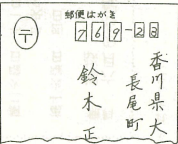 郵便はがき
〒
769-23
香川県大
長尾町
鈴木 正